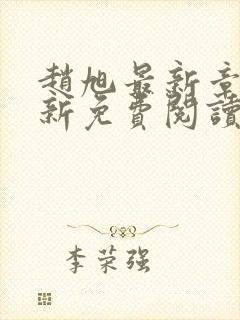 趙旭最新章
新免費閱讀
李荣强